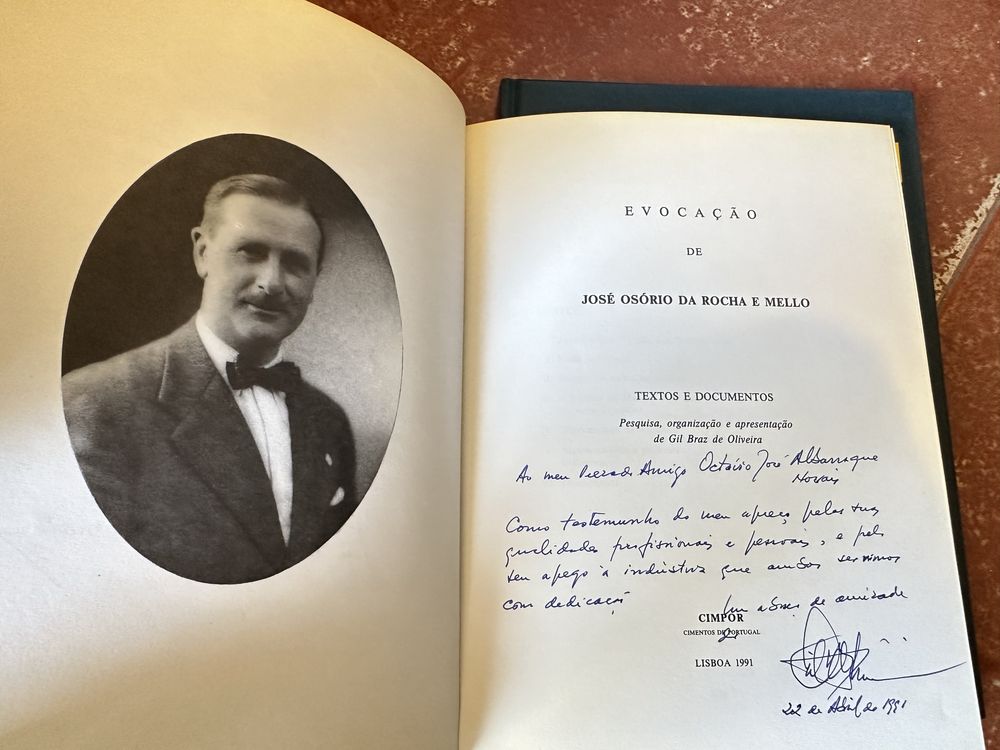 EVOCAÇÃO
DE
JOSÉ OSÓRIO DA ROCHA E MELLO
TEXTOS E DOCUMENTOS
Pesquisa, organização e apresentação
de Gil Braz de Oliveira
Ao meu Prezado Amigo Octávio José Albarraque
Novais
Como testemunho do meu apreço pelas tuas
qualidades profissionais e pessoais, e pelo
teu apego à indústria que ambos servimos
com dedicação
Um abraço de amizade
do
CIMPOR
CIMENTOS DE PORTUGAL
LISBOA 1991
22 de Abril de 1991